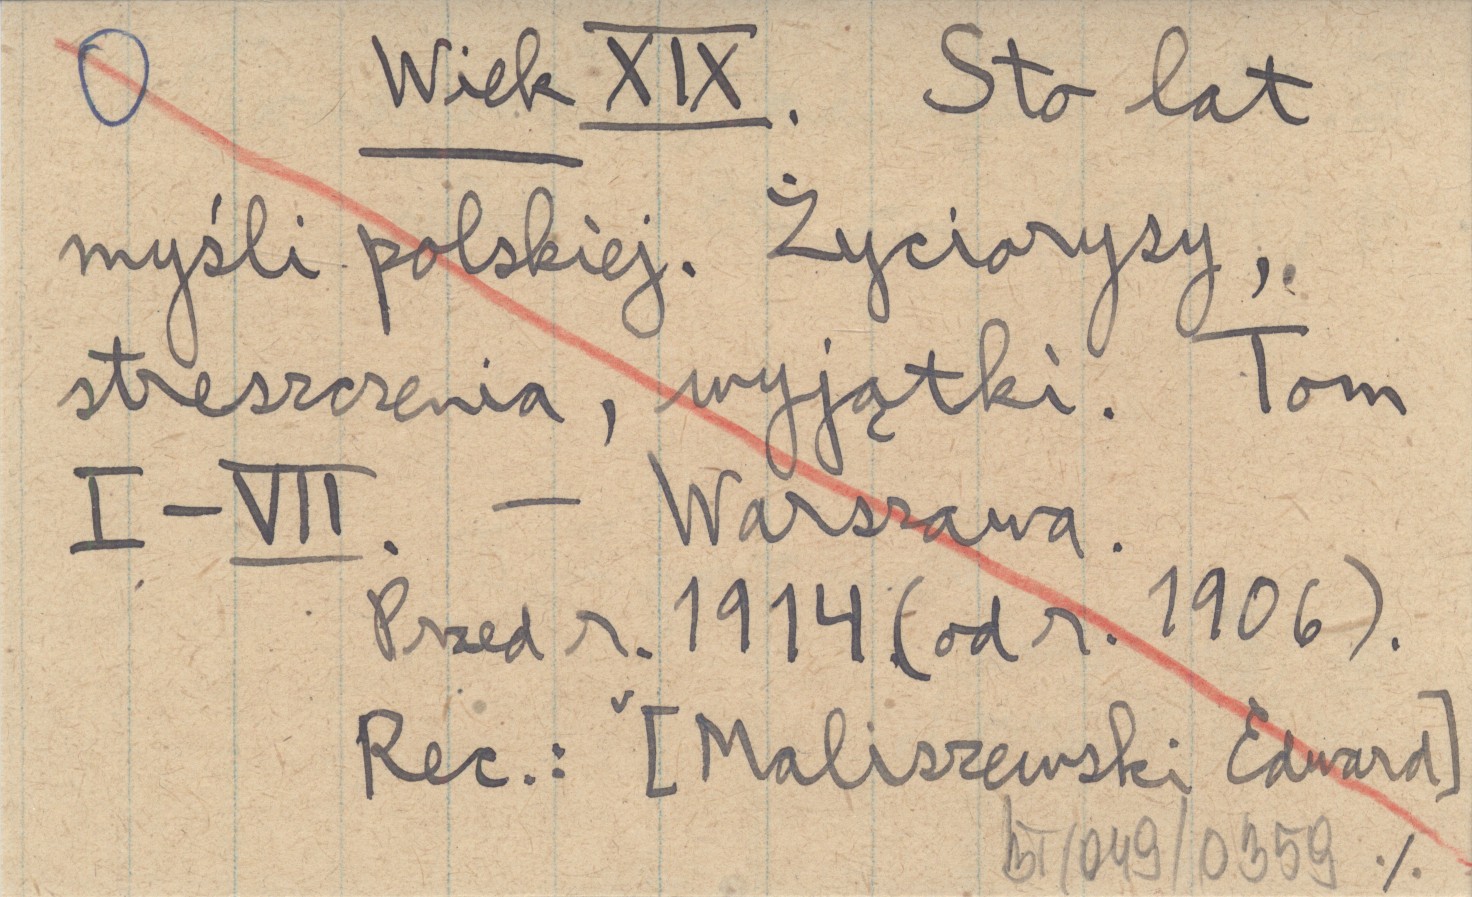 O Wiek XIX. Sto lat
myśli polskiej. Życiorysy,
streszczenia, wyjątki. Tom
I – VII. — Warszawa.
Przed r. 1914 (od r. 1906).
Rec.: [Maliszewski Edward]
BT/049/0359 ./.